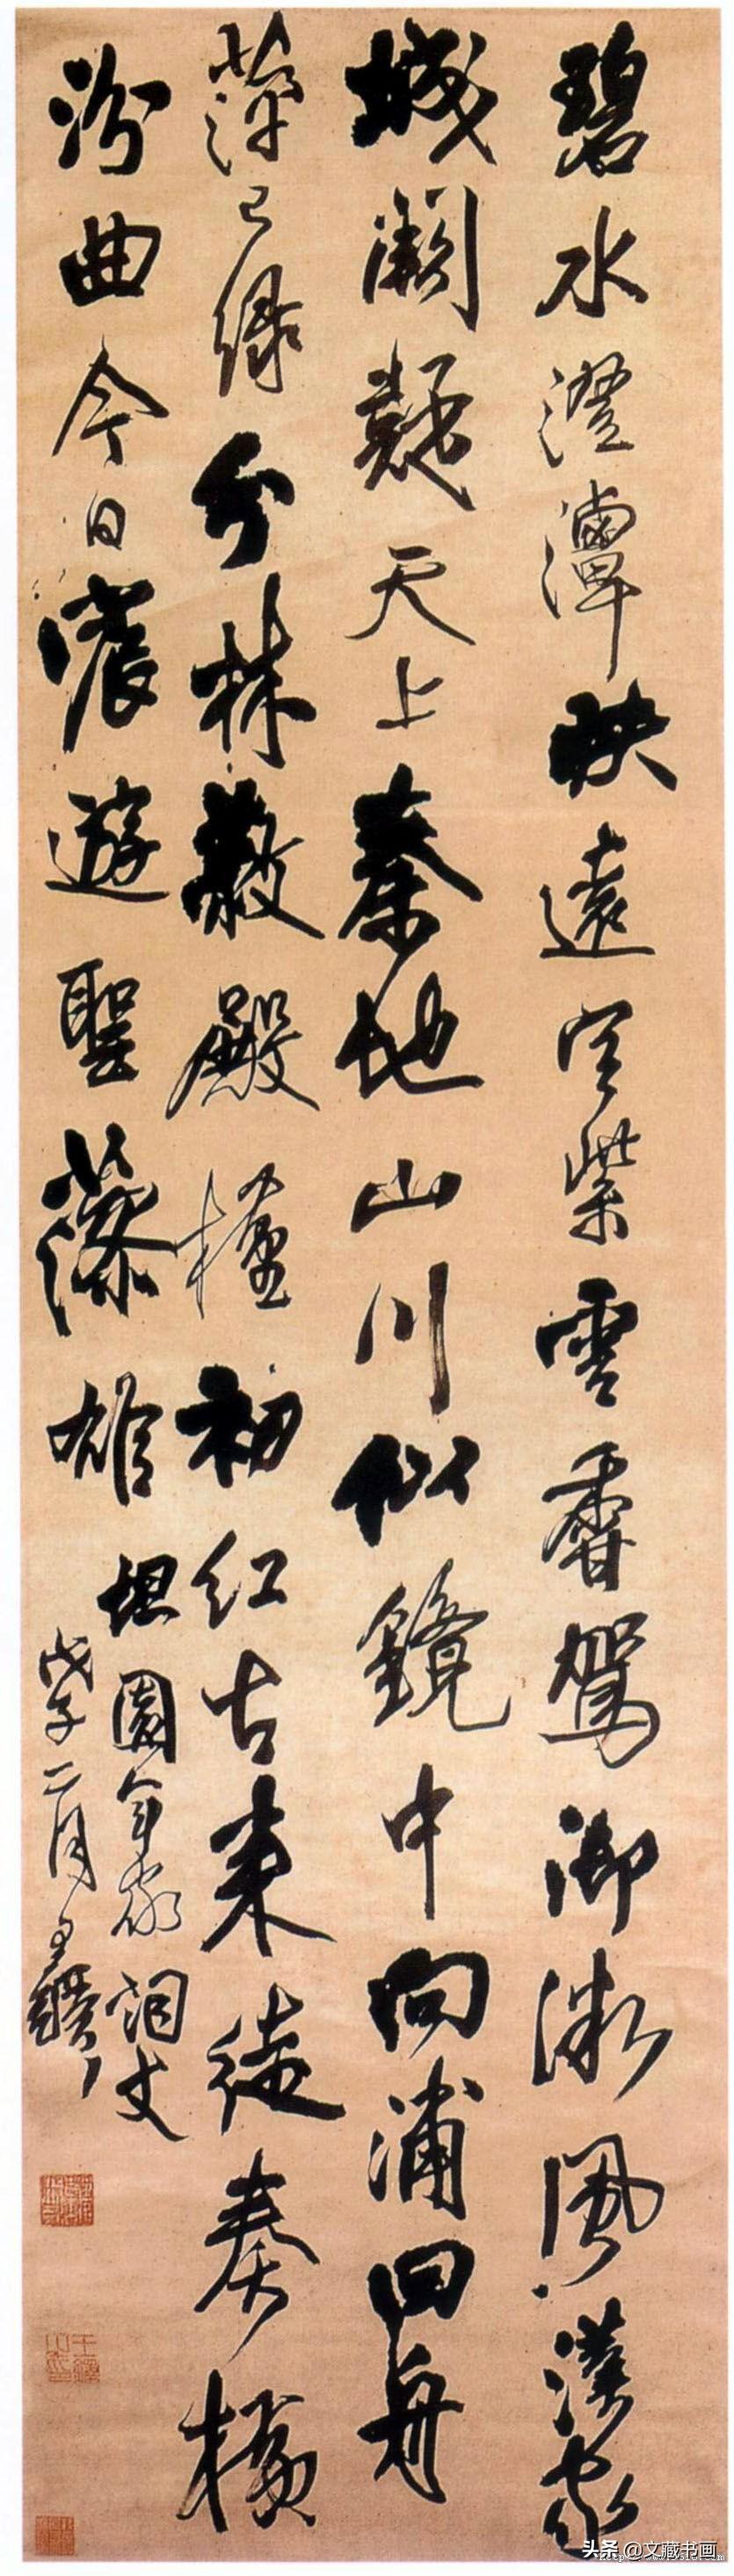 碧水澄潭映遠空紫雲香駕御微風漢家
城闕疑天上秦地山川似鏡中向浦回舟
萍已綠分林蔽殿槿初紅古來徒奏橫
汾曲今日宸遊聖藻雄
坦園年家詞丈
戊子二月王鐸
头条 @文藏书画